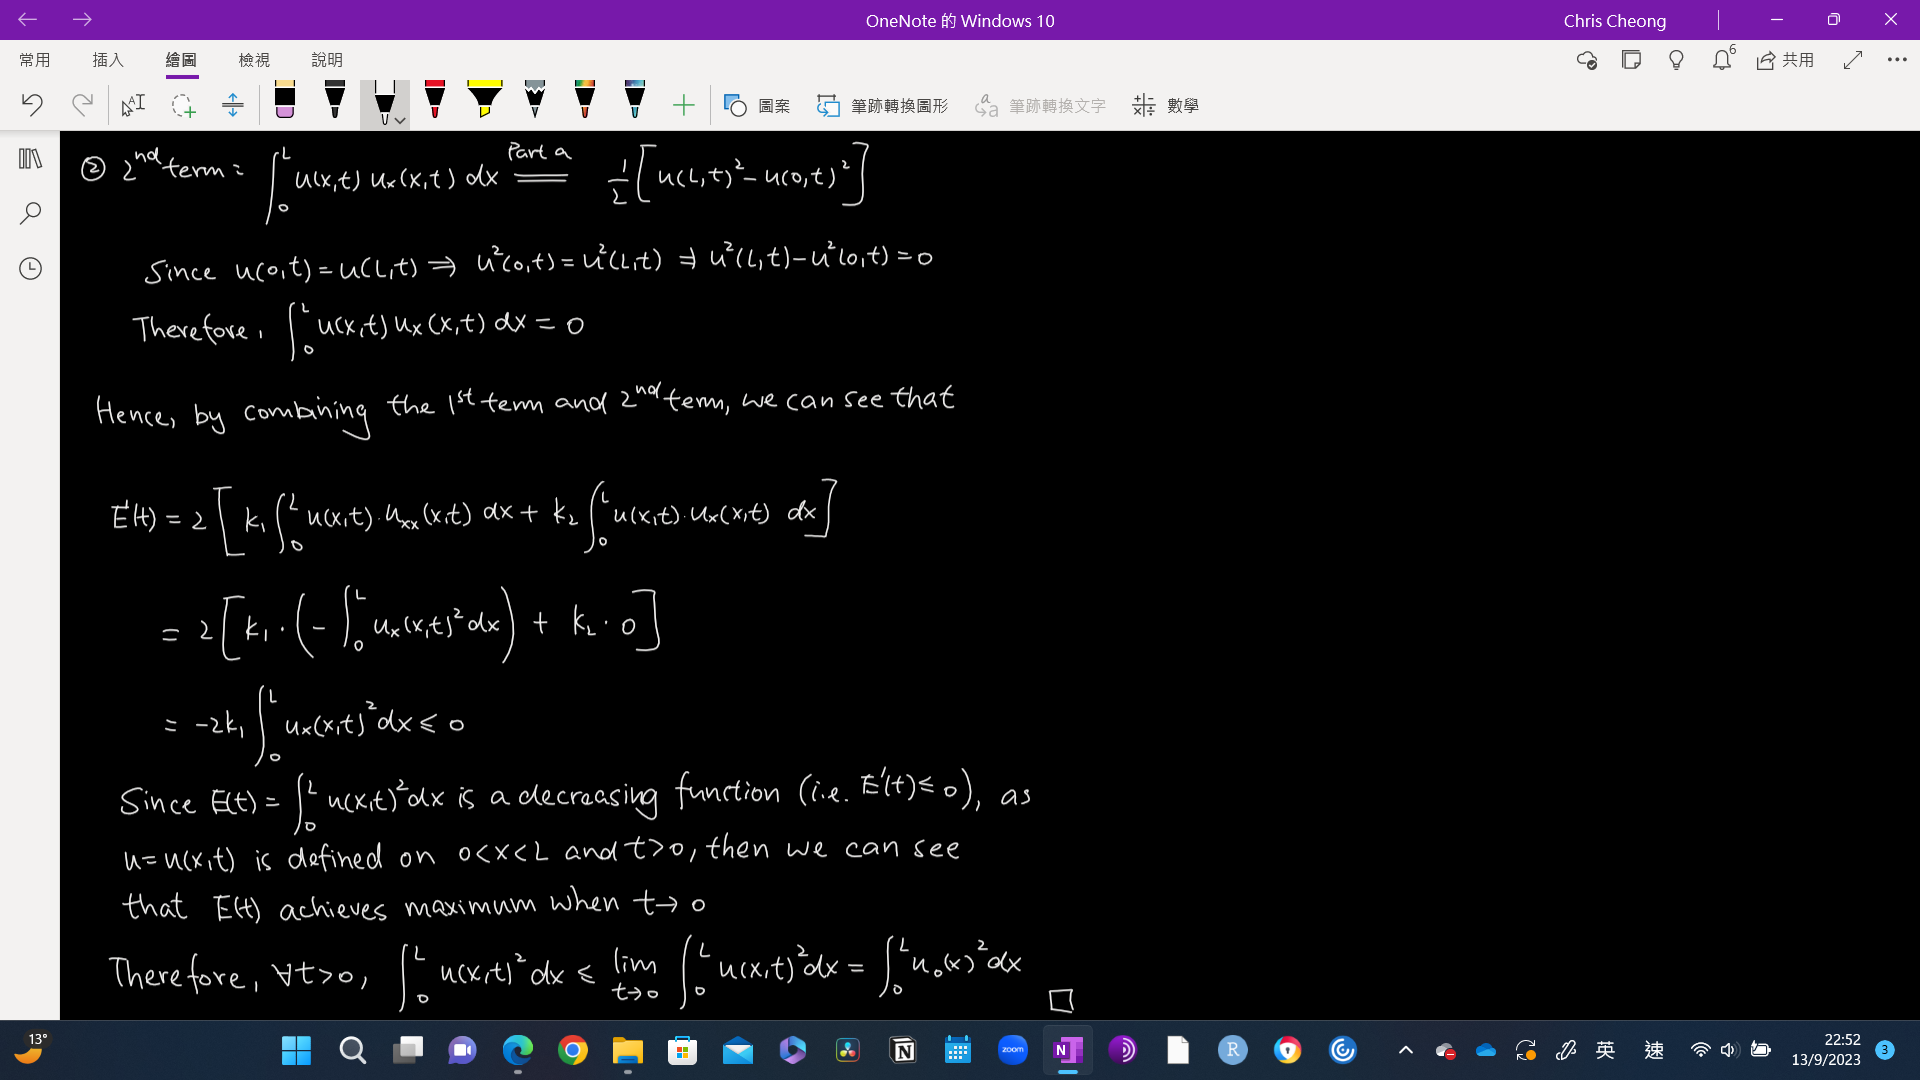 OneNote 的 Windows 10
Chris Cheong
常用 插入 繪圖 檢視 說明
6
共用
圖案 筆跡轉換圖形 筆跡轉換文字 數學
② 2nd term = ∫₀ᴸ u(x,t) uₓ(x,t) dx == Part a == 1/2 [u(L,t)² - u(0,t)²]
Since u(0,t) = u(L,t) ⇒ u²(0,t) = u²(L,t) ⇒ u²(L,t) - u²(0,t) = 0
Therefore, ∫₀ᴸ u(x,t) uₓ(x,t) dx = 0
Hence, by combining the 1st term and 2nd term, we can see that
E'(t) = 2 [k₁ ∫₀ᴸ u(x,t)·uₓₓ(x,t) dx + k₂ ∫₀ᴸ u(x,t)·uₓ(x,t) dx]
= 2 [k₁·(-∫₀ᴸ uₓ(x,t)² dx) + k₂·0]
= -2k₁ ∫₀ᴸ uₓ(x,t)² dx ≤ 0
Since E(t) = ∫₀ᴸ u(x,t)² dx is a decreasing function (i.e. E'(t) ≤ 0), as
u = u(x,t) is defined on 0<x<L and t>0, then we can see
that E(t) achieves maximum when t→0
Therefore, ∀t>0, ∫₀ᴸ u(x,t)² dx ≤ lim t→0 ∫₀ᴸ u(x,t)² dx = ∫₀ᴸ u₀(x)² dx □
13°
zoom
N
R
英 速
22:52
13/9/2023
3